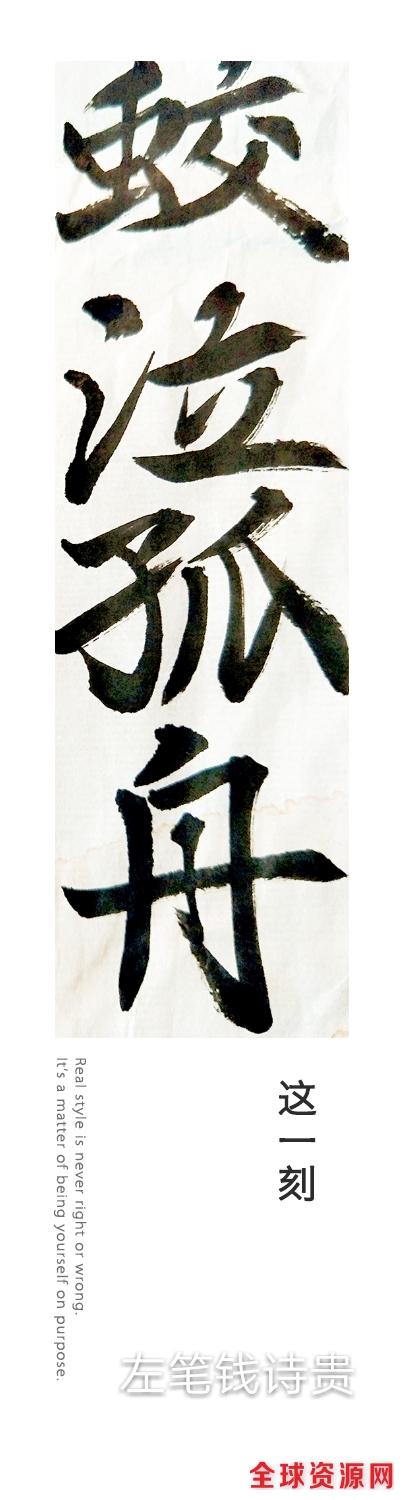 蛟
泣
孤
舟
这一刻
Real style is never right or wrong.
It's a matter of being yourself on purpose.
左笔钱诗贵
全球资源网